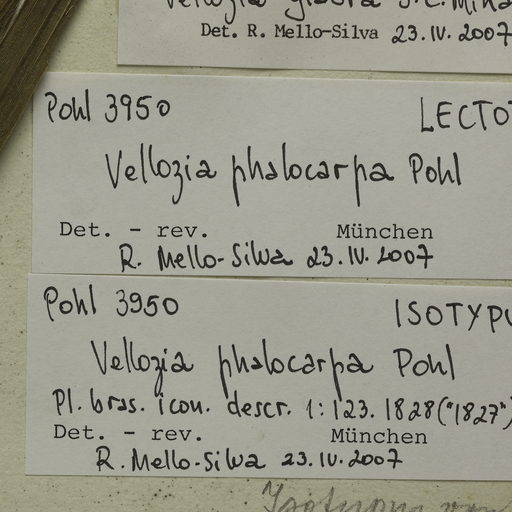 Vellozia glabra J.C. Mikan
Det. R. Mello-Silva 23.IV.2007
Pohl 3950 LECTOT
Vellozia phalocarpa Pohl
Det. - rev. München
R. Mello-Silva 23.IV.2007
Pohl 3950 ISOTYPU
Vellozia phalocarpa Pohl
Pl. bras. icon. descr. 1:123. 1828("1827")
Det. - rev. München
R. Mello-Silva 23.IV.2007